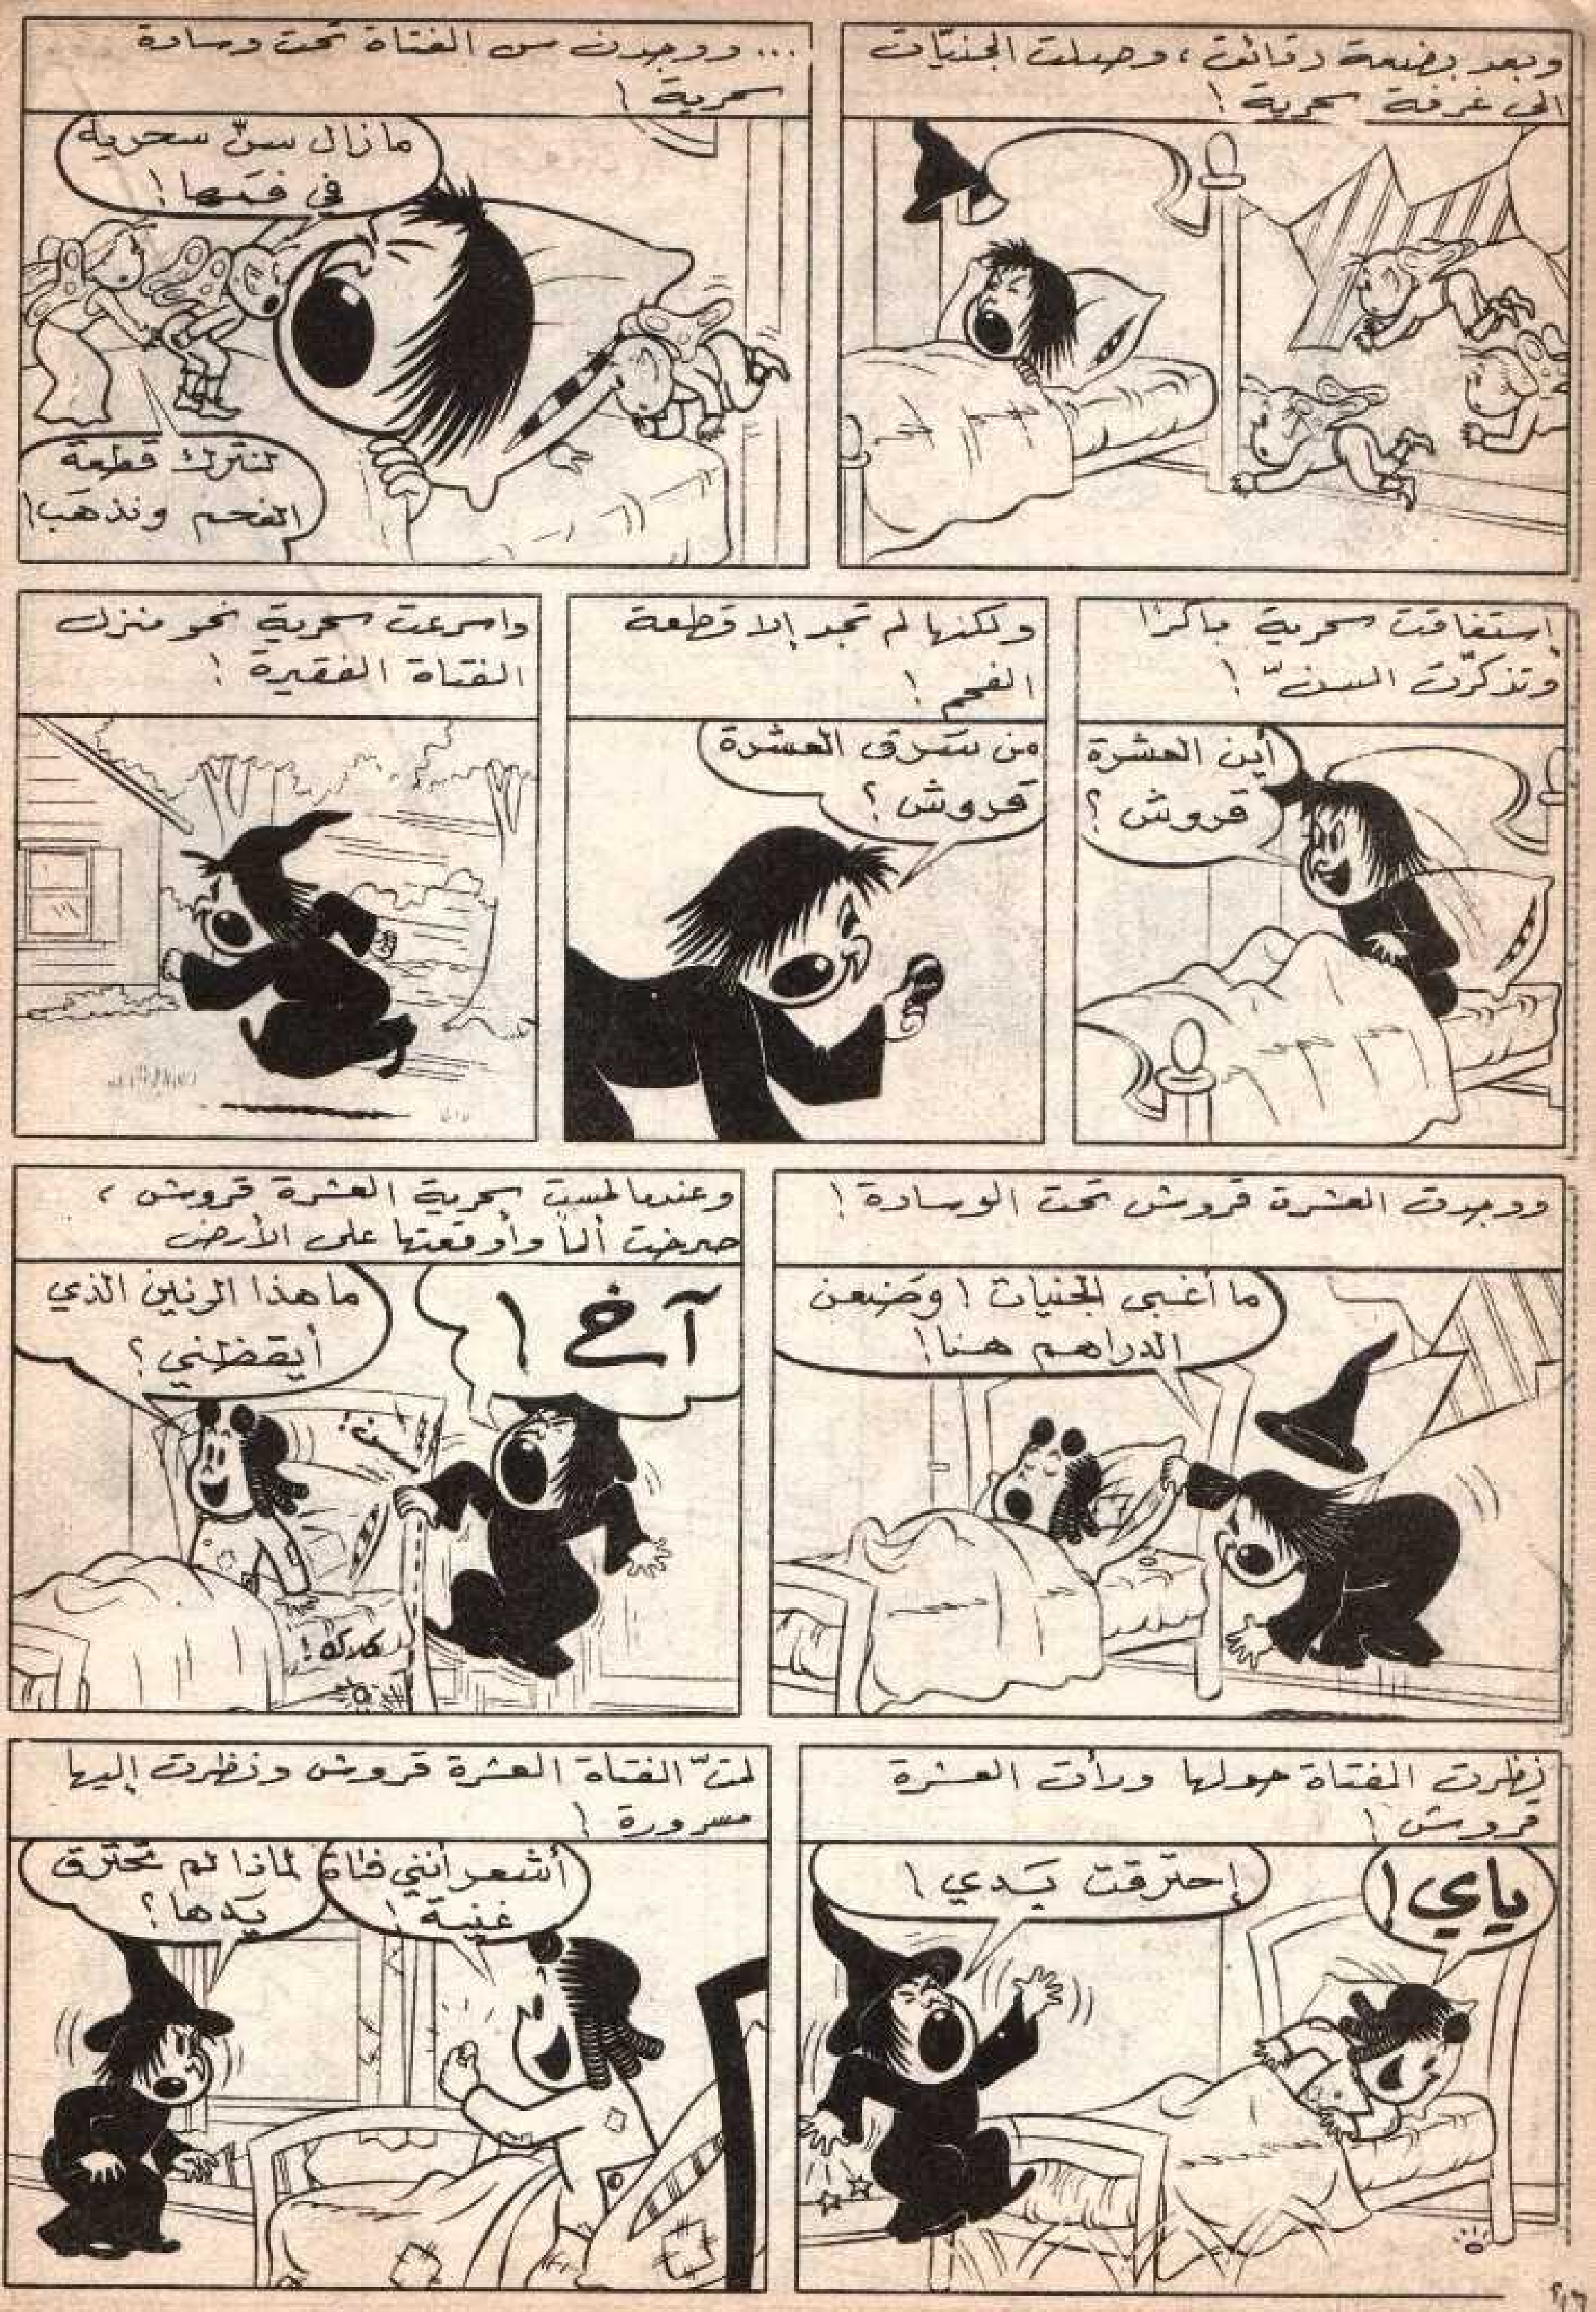 وبعد بضعة دقائق، وصلت الجنيّات
الى غرفة سحرية!
... ووجدن سن الفتاة تحت وسادة
سحرية!
ما زال سنّ سحرية
في فمها!
لنترك قطعة
الفحم ونذهب!
إستفاقت سحرية باكرًا
وتذكرّت السنّ!
أين العشرة
قروش؟
ولكنها لم تجد إلا قطعة
الفحم!
من سرق العشرة
قروش؟
واسرعت سحرية نحو منزل
الفتاة الفقيرة!
ووجدت العشرة قروش تحت الوسادة!
ما أغبى الجنيات! وضعن
الدراهم هنا!
وعندما لمست سحرية العشرة قروش،
صرخت ألماً وأوقعتها على الأرض
آخ!
ما هذا الرنين الذي
أيقظني؟
نظرت الفتاة حولها ورأت العشرة
قروش!
ياي!
إحترقت يدي!
لمّت الفتاة العشرة قروش ونظرت إليها
مسرورة!
أشعر أنني فتاة
غنية!
لماذا لم تحترق
يدها؟